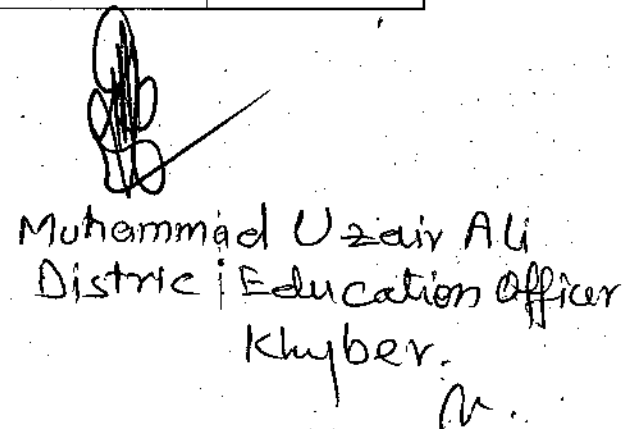 Muhammad Uzair Ali
District Education Officer
Khyber.